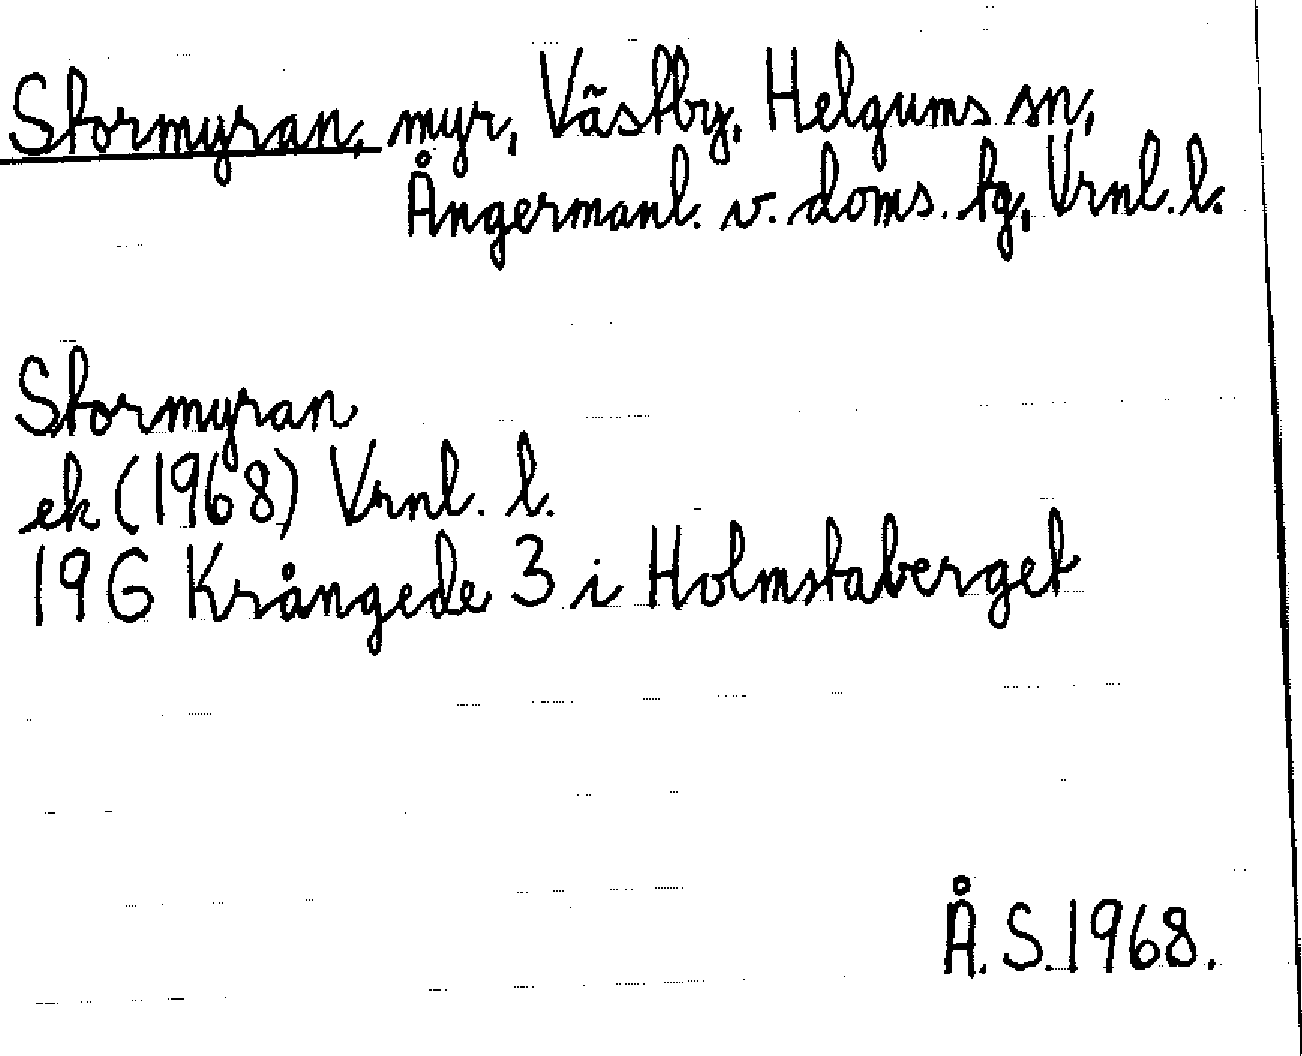 Stormyran, myr, Västby, Helgums sn,
Ångermanl. v. doms. tg, Vrnl. l.
Stormyran
ek (1968) Vrnl. l.
19G Krångede 3 i Holmstaberget
Å. S. 1968.